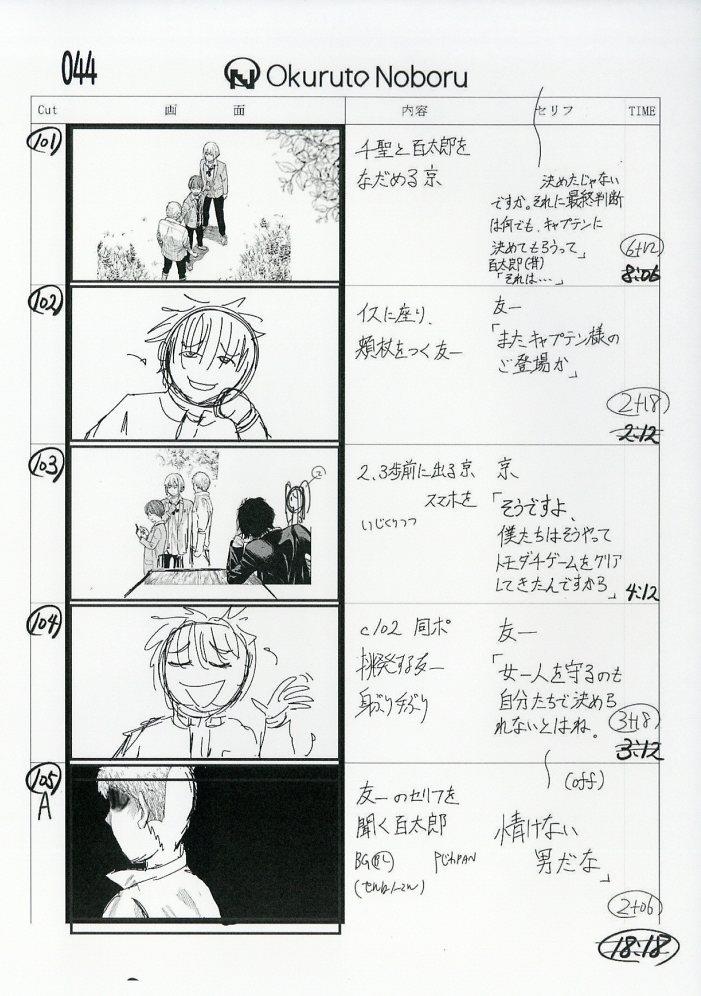 044
Okuruto Noboru
Cut 画面 内容 セリフ TIME
101
千聖と百太郎を
なだめる京
決めたじゃない
ですか。それに最終判断
は何でも、キャプテンに
決めてもらうって」
百太郎(汗)
「それは…」
6+12
8:06
102
イスに座り、
頬杖をつく友一
友一
「またキャプテン様の
ご登場か」
2+18
2:12
103
2
2、3歩前に出る京
スマホを
いじくりつつ
京
「そうですよ、
僕たちはそうやって
トモダチゲームをクリア
してきたんですから」
4:12
104
c102 同ポ
挑発する友一
身ぶり手ぶり
友一
「女一人を守るのも
自分たちで決めら
れないとはね。
3+18
3:12
105
A
友一のセリフを
聞く百太郎
(off)
情けない
男だな」
2+06
18:18